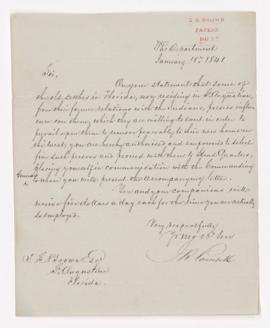 War Department
January 18th 1841
Sir,
On your statement that some of
the old settlers in Florida, now residing in St Augustine,
from their former relations with the Indians, possess influ-
ence over them, which they are willing to exert, in order to
prevail upon them to remove peaceably to their new homes in
the west, you are hereby authorised and empowered to select
five such persons and proceed with them to Head Quarters,
placing yourself in communication with the Commanding
General
to whom you will present the accompanying letter.
You and your companions will
receive five dollars a day each for the time you are actually
so employed.
Very respectfully
Yr Mo Ob Serv
J R Poinsett
Esqr
St Augustine
Florida.